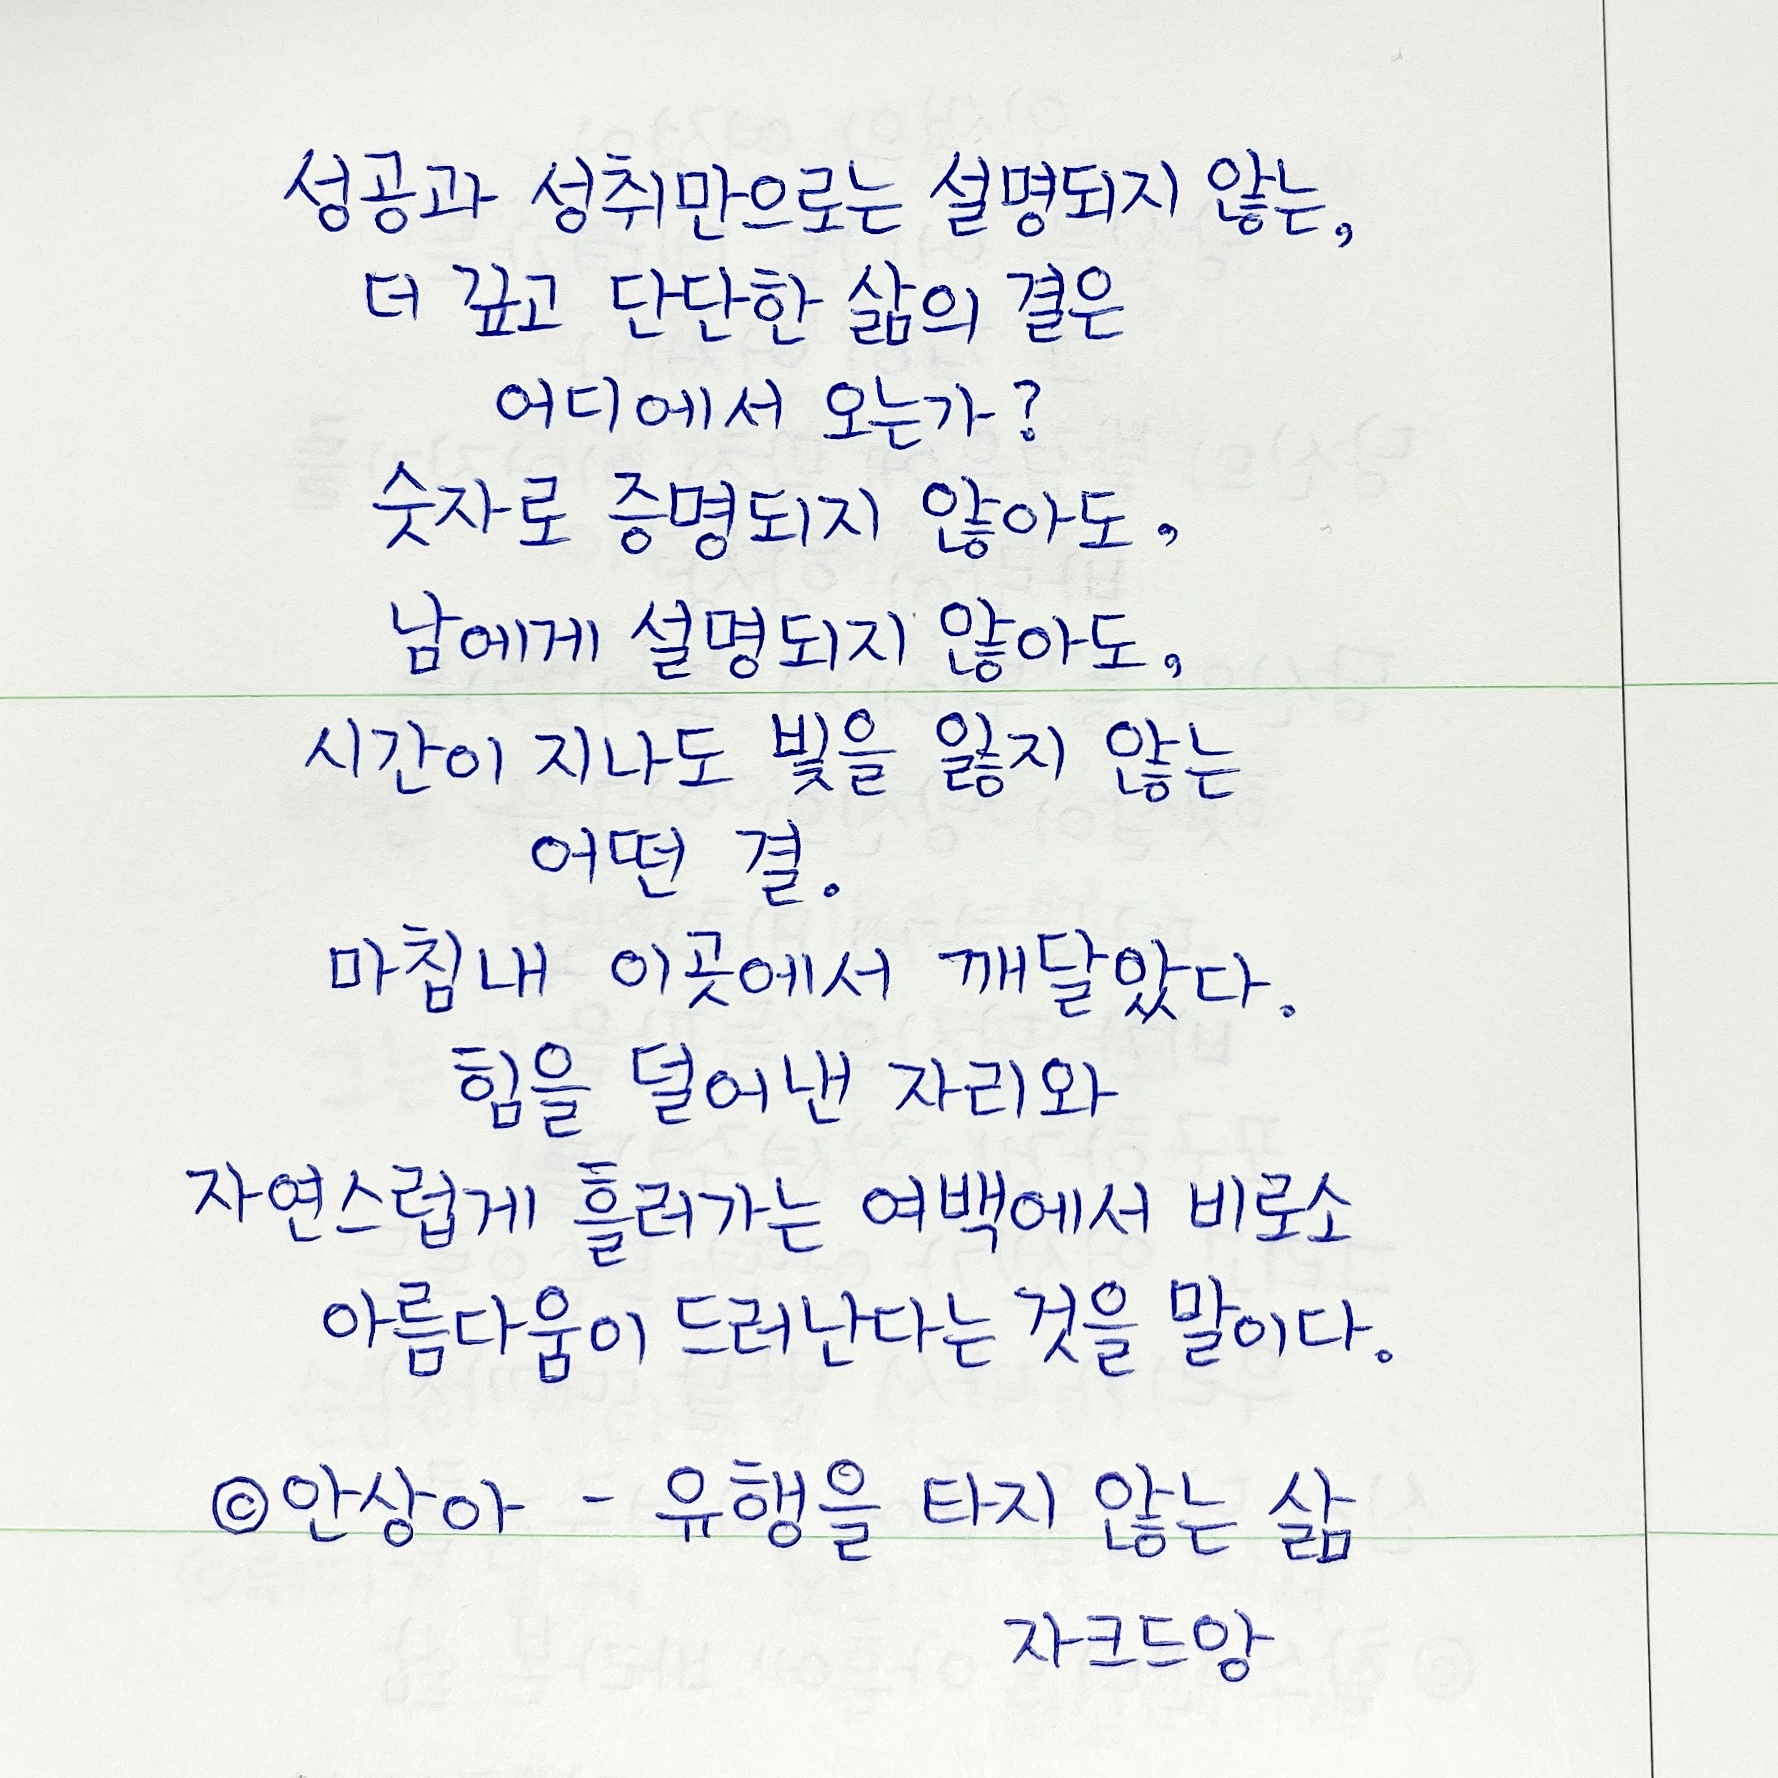 성공과 성취만으로는 설명되지 않는,
더 깊고 단단한 삶의 결은
어디에서 오는가?
숫자로 증명되지 않아도,
남에게 설명되지 않아도,
시간이 지나도 빛을 잃지 않는
어떤 결.
마침내 이곳에서 깨달았다.
힘을 덜어낸 자리와
자연스럽게 흘러가는 여백에서 비로소
아름다움이 드러난다는 것을 말이다.
©안상아 - 유행을 타지 않는 삶
자크드앙